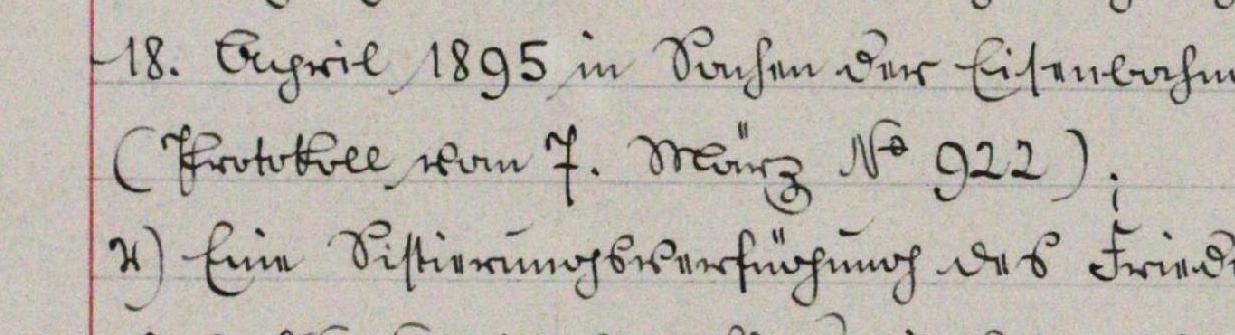 18. April 1895 in Sachen der Eisenbahn
(Protokoll vom 7. März No 922);
2) Eine Sistierungsverfügung des Fried